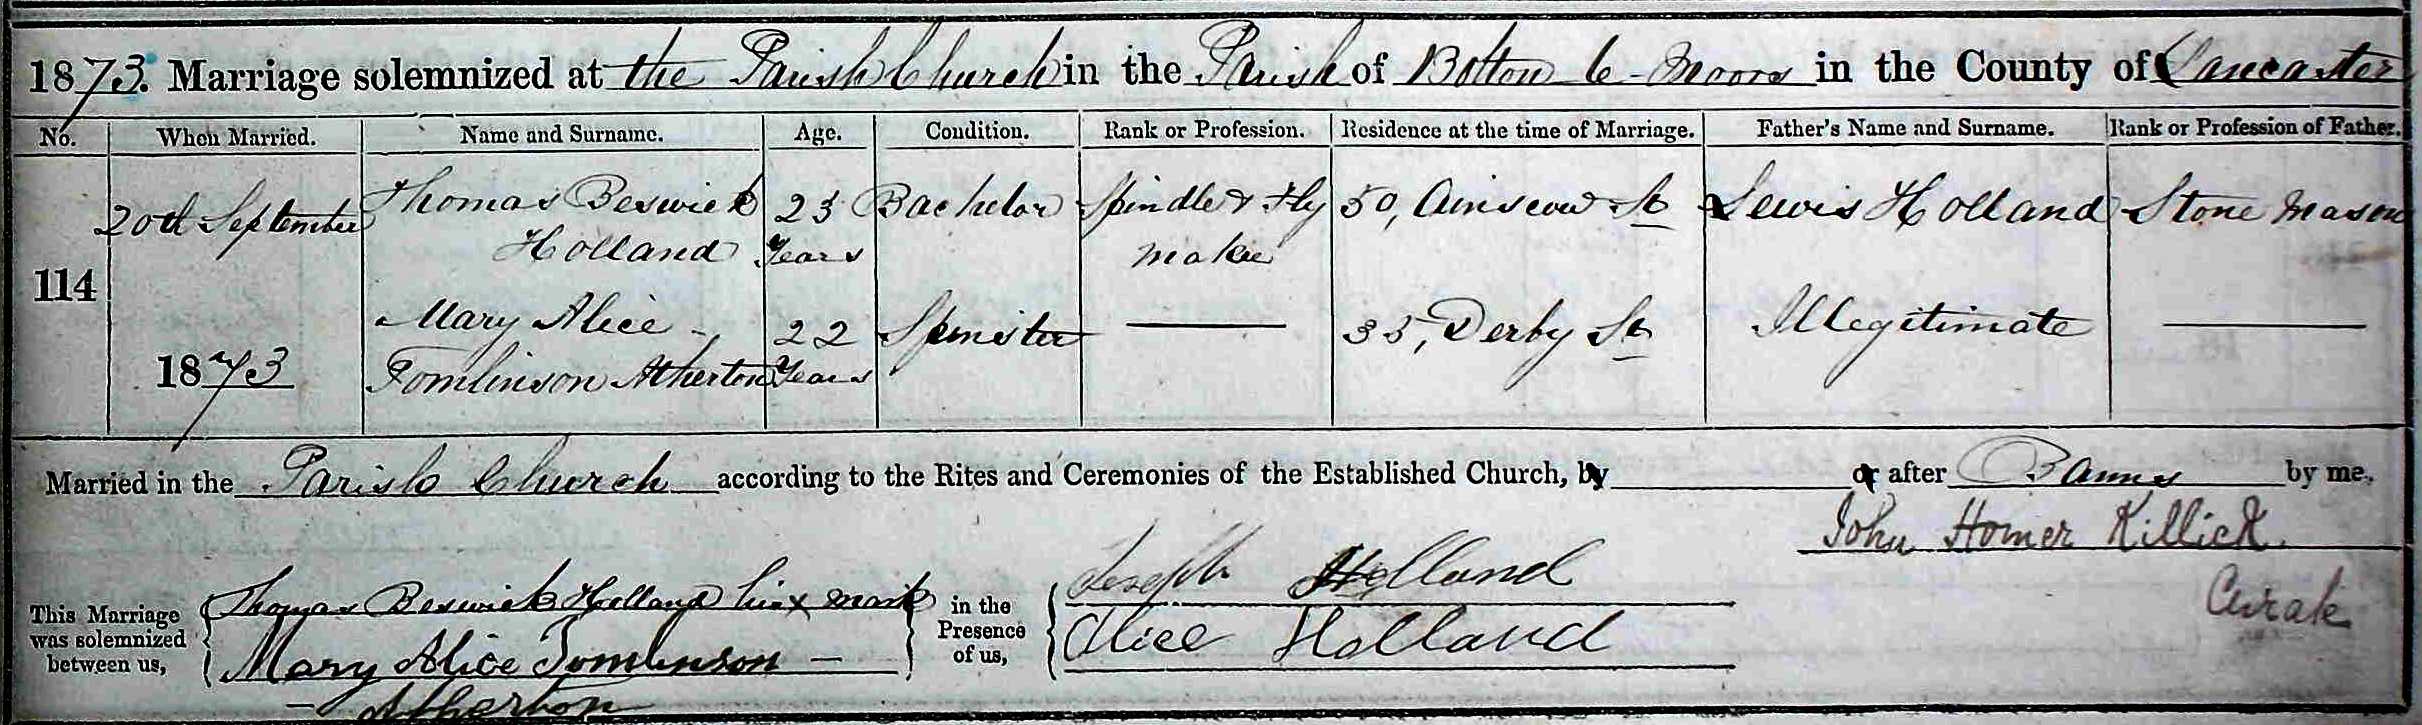 1873. Marriage solemnized at the Parish Church in the Parish of Bolton le Moors in the County of Lancaster
No. When Married. Name and Surname. Age. Condition. Rank or Profession. Residence at the time of Marriage. Father's Name and Surname. Rank or Profession of Father.
114
20th September
1873
Thomas Beswick
Holland
23
Years
Bachelor
Spindle & Fly
maker
50, Ainscow St
Lewis Holland
Stone Mason
Mary Alice -
Tomlinson Atherton
22
Years
Spinster
35, Derby St
Illegitimate
Married in the Parish Church according to the Rites and Ceremonies of the Established Church, by or after Banns by me,
John Homer Killick
Curate
This Marriage
was solemnized
between us,
Thomas Beswick Holland his x mark
Mary Alice Tomlinson -
- Atherton
in the
Presence
of us,
Joseph Holland
Alice Holland